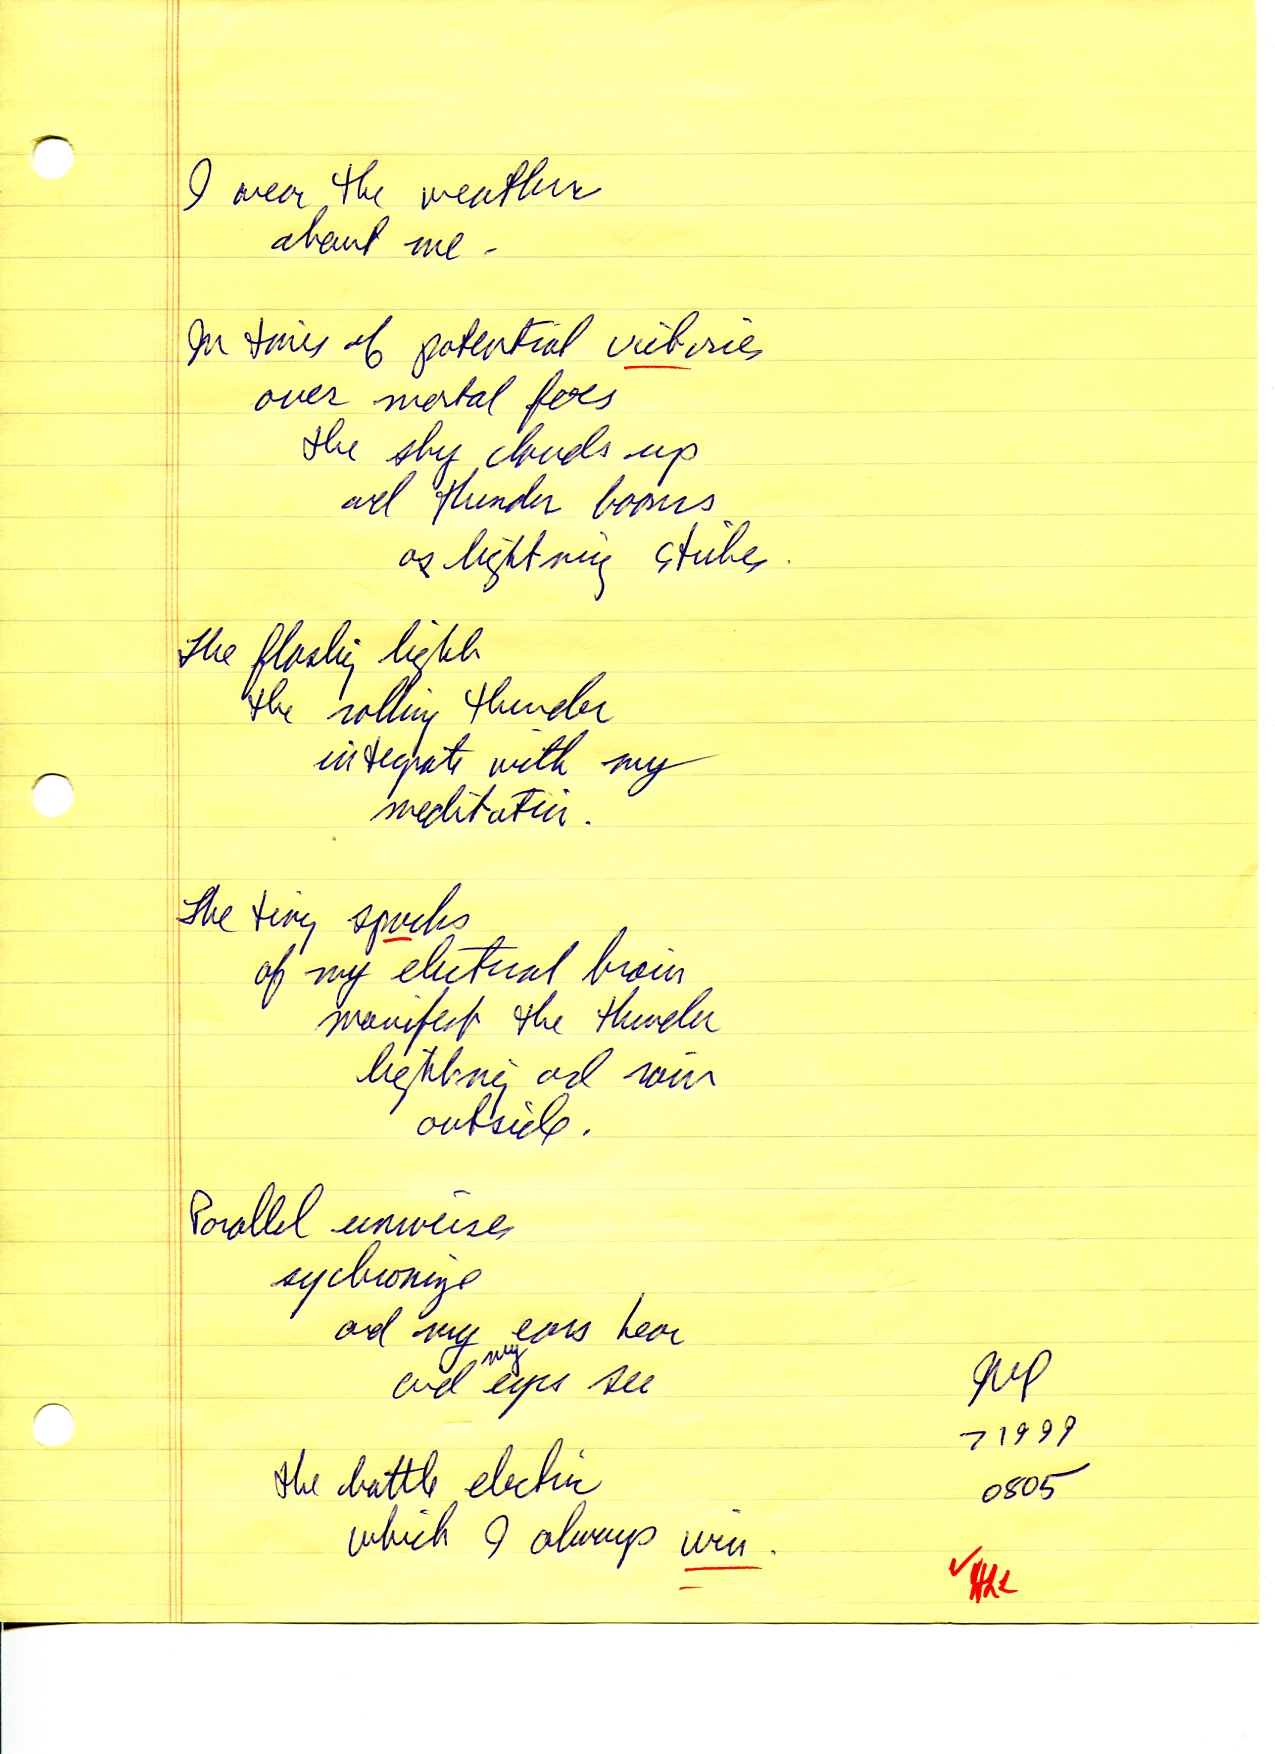 I wear the weather
about me -
In times of potential victories
over mortal foes
the sky clouds up
and thunder booms
as lightning strikes.
The flashing light
the rolling thunder
integrate with my
meditation.
The tiny sparks
of my electrical brain
manifest the thunder
lightning and rain
outside.
Parallel universes
sychronize
and my ears hear
and my eyes see
the battle electric
which I always win.
71999
0805